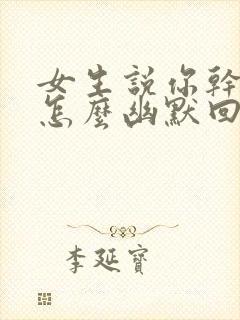 女生説你幹
怎麼幽默回
李延寶